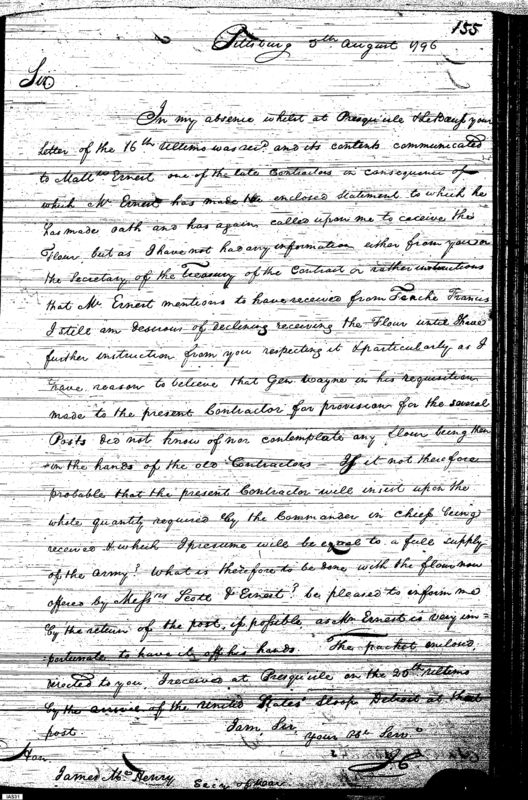 155
Pittsburg 5th August 1796
Sir
In my absence whilst at Presqu'ile &c your
Letter of the 16th Ultimo was recd. and its contents communicated
to Matthw Ernest one of the late Contractors in consequence of
which Mr Ernest has made the enclosed Statement to which he
has made oath and has again called upon me to receive the
Flour, but as I have not had any information either from you or
the Secretary of the Treasury of the Contract or rather instructions
that Mr Ernest mentions to have received from Tenche Francis
I still am desirous of declining receiving the Flour until I have
further instruction from you respecting it & particularly as I
have reason to believe that Genl Wayne in his requisition
made to the present Contractor for provision for the several
Posts did not know of nor contemplate any flour being then
in the hands of the old Contractors If it not therefore
probable that the present Contractor will insist upon the
whole quantity required by the Commander in Chief being
received & which I presume will be equal to a full supply
of the army? What is therefore to be done with the flour now
offered by Messrs Scott & Ernest? be pleased to inform me
by the return of the post, if possible, as Mr Ernest is very im=
=portunate to have it off his hands. The packet enclosed,
directed to you, I received at Presqu'ile on the 20th Ultimo
by the of the United States Sloop Detroit at that
post.
I am, Sir,
your Ob. Servt
Hon.
James McHenry
Secy of War
IAS31